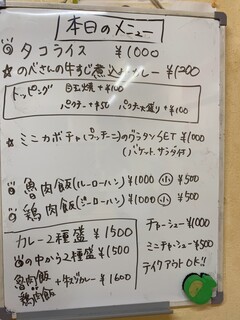 本日のメニュー
◎タコライス ¥1000
☆のべさんの牛すじ煮込カレー ¥1200
トッピング 目玉焼 +¥100
パクチー +¥50 パクチー大盛り +¥100
☆ミニカボチャ(プッチーニ)のグラタンSET ¥1000
(バケット、サラダ付)
◎魯肉飯(ルーローハン) ¥1000 小 ¥500
◎鶏肉飯(ジーローハン) ¥1000 小 ¥500
カレー2種盛 ¥1500
◎の中から2種盛 ¥1500
魯肉飯
鶏肉飯 +牛すじカレー ¥1600
チャーシュー ¥1000
ミニチャーシュー ¥500
テイクアウトOK!!